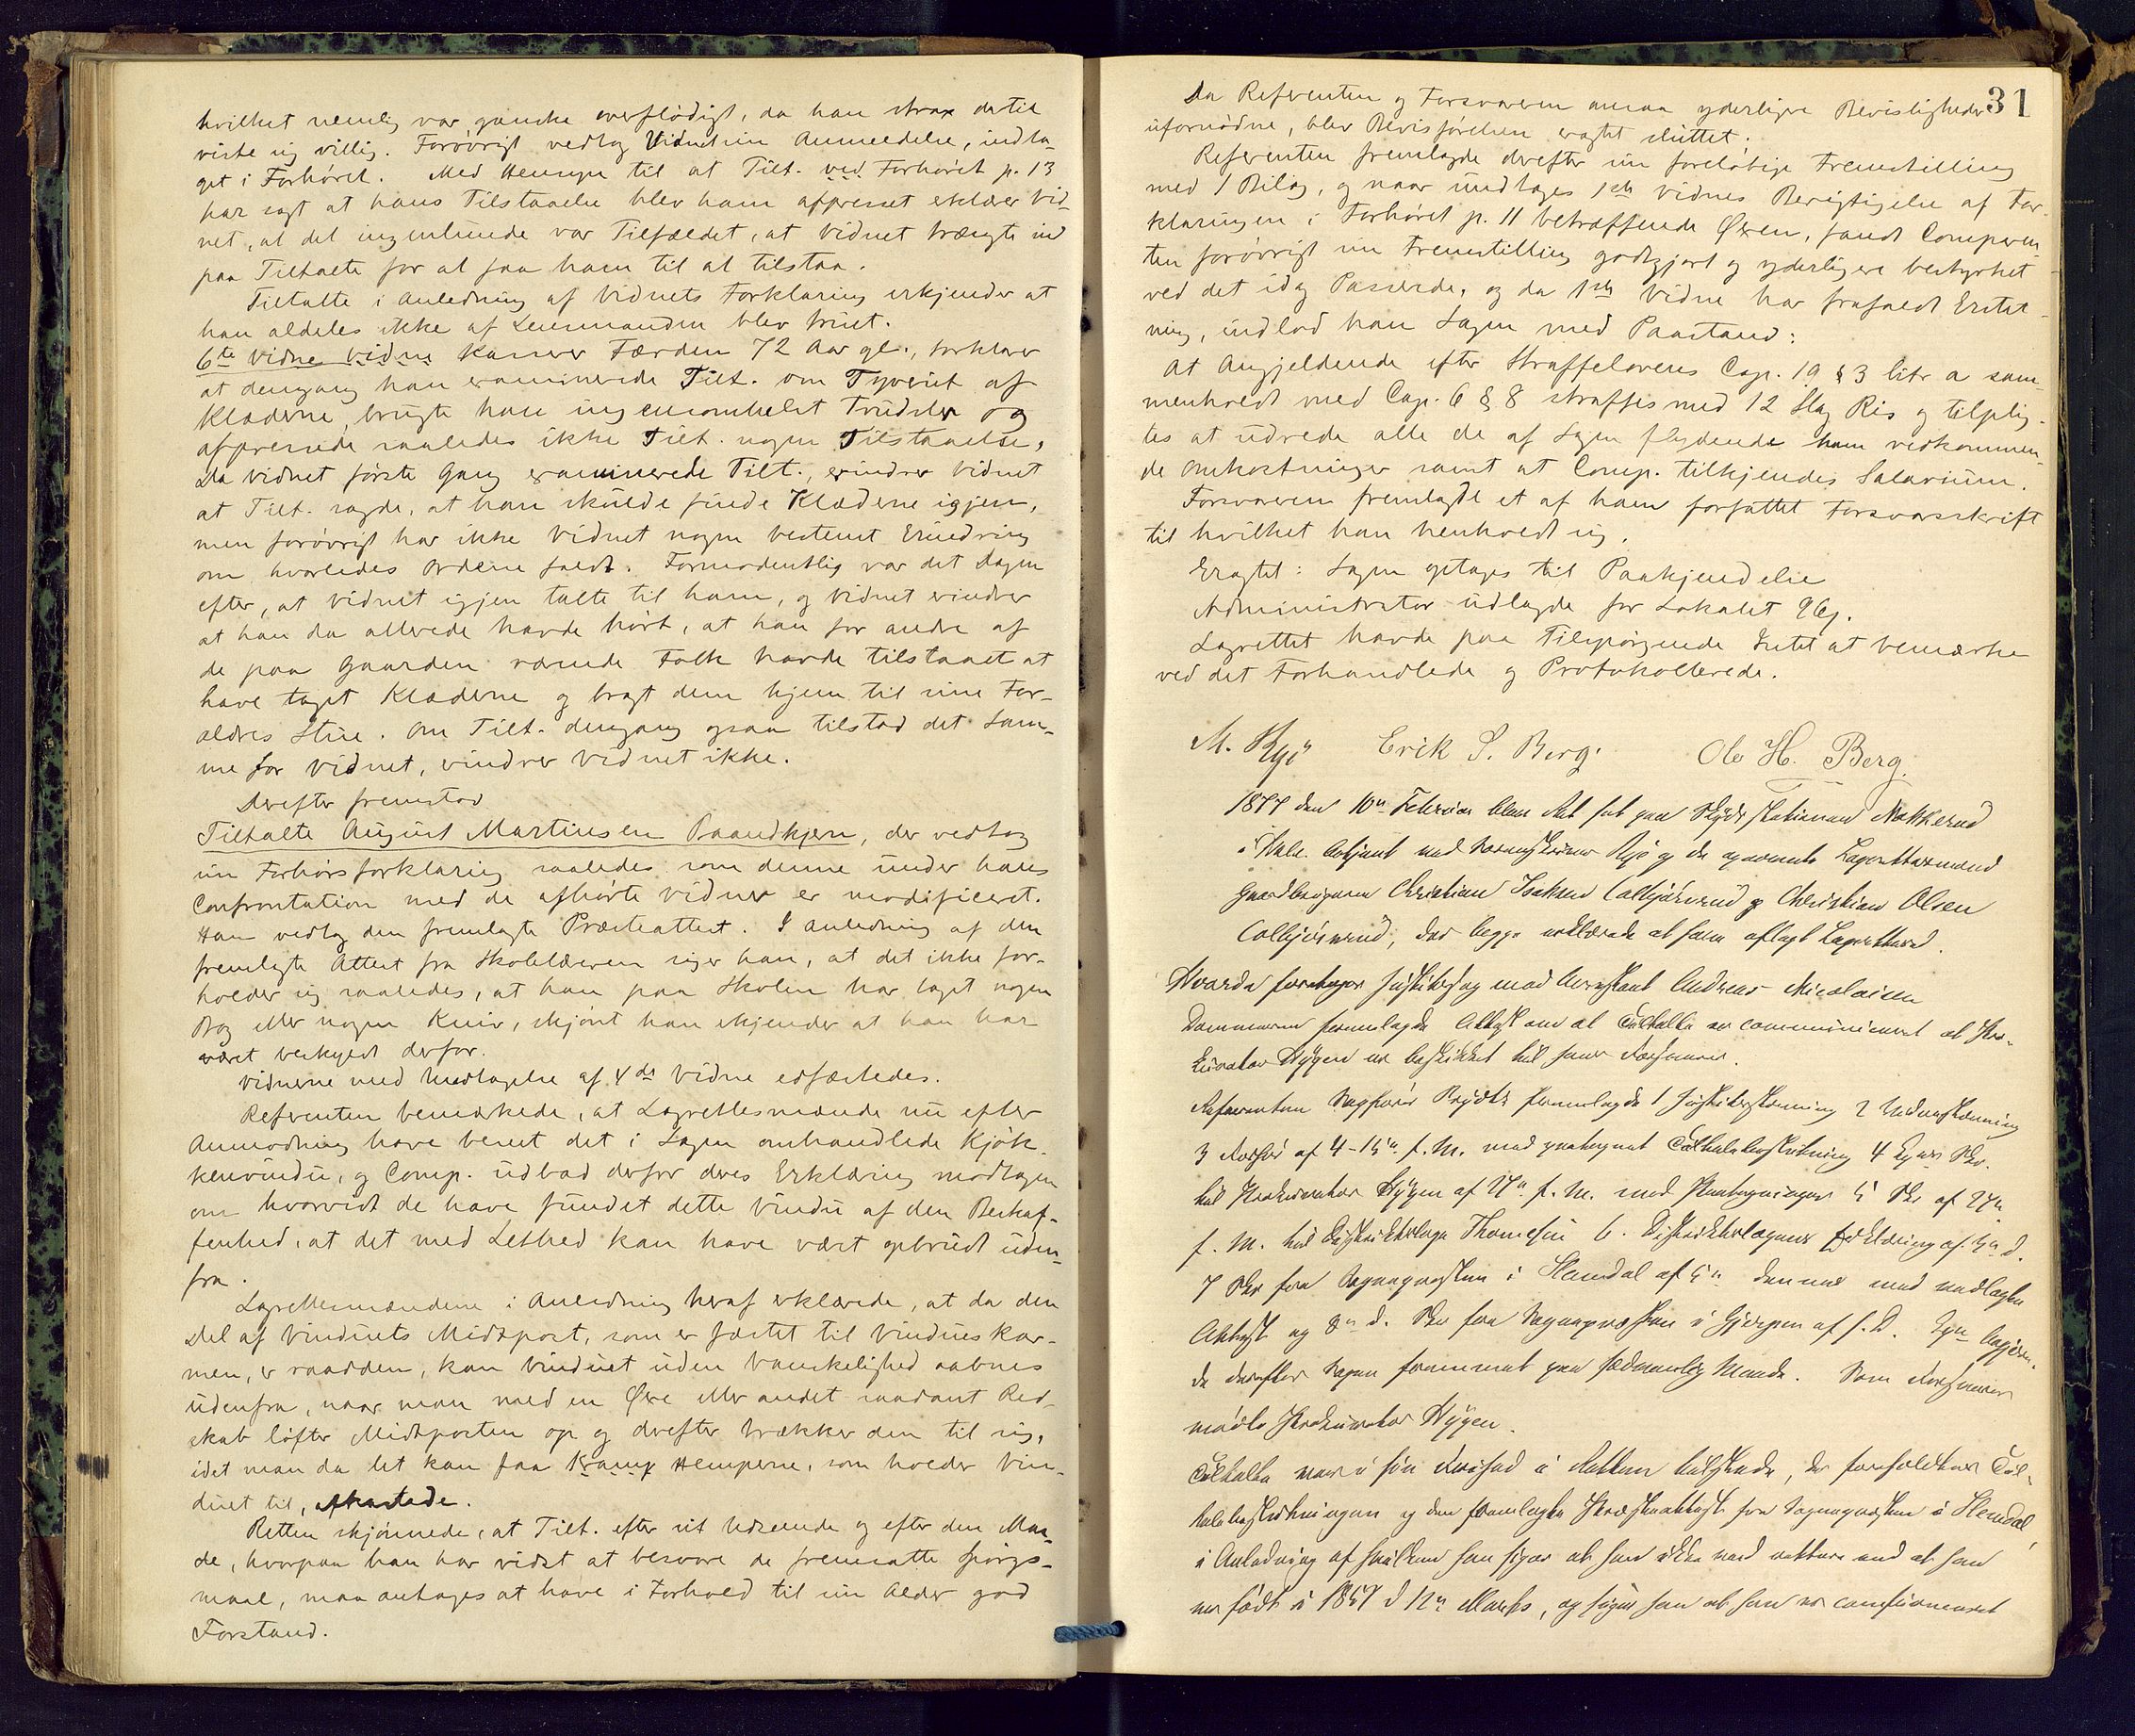 hvilket nemlig var ganske overflödigt, da han strax dertil
viste sig villig. Forövrigt vedtog Vidnet sin Anmeldelse, indta-
get i Forhöret. Med Hensyn til at Tilt. ved Forhöret p. 13
har sagt at hans Tilstaaelse blev ham afpresset erklærer Vid-
net, at det ingenlunde var Tilfældet, at Vidnet trængte ind
paa Tiltalte for at faa ham til at tilstaa.
Tiltalte i Anledning af Vidnets Forklaring erkjender at
han aldeles ikke af Lensmanden blev truet.
6te Vidne Vidne Færden 72 Aar gl., forklarer
at dengang han examinerede Tilt. om Tyveriet af
Klæderne, brugte han ingensomhelst Trudsler og
afpressede saaledes ikke Tilt. nogen Tilstaaelse,
Da Vidnet förste Gang examinerede Tilt., erindrer Vidnet
at Tilt. sagde, at han skulde finde Klæderne igjen,
men forövrigt har ikke Vidnet nogen bestemt Erindring
om hvorledes Ordene faldt. Formodentlig var det Dagen
efter, at Vidnet igjen talte til ham, og Vidnet erindrer
at han da allerede havde hört, at han for andre af
de paa Gaarden værende Folk havde tilstaaet at
have taget Klæderne og bragt dem hjem til sine For-
ældres Stue. Om Tilt. dengang ogsaa tilstod det Sam-
me for Vidnet, erindrer Vidnet ikke.
Derefter fremstod
Tiltalte August Martinsen Paandkjern, der vedtog
sin Forhörsforklaring saaledes som denne under hans
Confrontation med de afhörte Vidner er modificeret.
Han vedtog den fremlagte Præsteattest. I Anledning af den
fremlagte Attest fra Skolelæreren siger han, at det ikke for-
holder sig saaledes, at han paa Skolen har taget nogen
Bog eller nogen Kniv, skjönt han erkjender at han har
været beskyldt derfor.
Vidnerne med Undtagelse af 4de Vidne edfæstedes.
Referenten bemærkede, at Lagrettesmændene nu efter
Anmodning have beseet det i Sagen omhandlede Kjök-
kenvindu, og Comp. udbad derfor deres Erklæring modtagen
om hvorvidt de have fundet dette Vindu af den Beskaf-
fenhed, at det med Lethed kan have vært opbrudt uden-
fra.
Lagrettesmændene i Anledning heraf erklærede, at da den
Del af Vinduets Midtpost, som er fæstet til Vindueskar-
men, er raadden, kan Vinduet uden Vanskelighed aabnes
udenfra, naar man med en Öxe eller andet saadant Red-
skab löfter Midtposten op og derefter trækker den til sig,
idet man da let kan faa Hemperne, som holder Vin-
duet til, afkastede.
Retten skjönnede, at Tilt. efter sit Udseende og efter den Maa-
de, hvorpaa han har vidst at besvare de fremsatte Spörgs-
maal, maa antages at have i Forhold til sin Alder god
Forstand.
31
Da Referenten og Forsvareren ansaa yderligere Bevisligheder
ufornödne, blev Bevisförelsen eragtet sluttet.
Referenten fremlagde derefter sin foreløbige Fremstilling
med 1 Bilag, og naar undtages 1ste Vidnes Berigtigelse af For-
klaringen i Forhöret p. 11 betræffende Øxen, fandt Comparen-
ten forövrigt sin Fremstilling godtgjort og yderligere bestyrket
ved det idag Passerede, og da 1ste Vidne har frafaldt Erstat-
ning, indlod han Sagen med Paastand:
At Angjeldende efter Straffelovens Cap. 19 § 3 litr a sam-
menholdt med Cap. 6 § 8 straffes med 12 Slag Ris og tilplig-
tes at udrede alle de af Sagen flydende ham vedkommen-
de Omkostninger samt at Comp. tilkjendes Salarium.
Forsvareren fremlagde et af ham forfattet Forsvarsskrift
til hvilket han henholdt sig.
Eragtet: Sagen optages til Paakjendelse
Administrator udlagde for Lokalet
Lagrettet havde paa Tilspörgende Intet at bemærke
ved det Forhandlede og Protokollerede.
M. Rye Erik S. Berg. Ole H. Berg.
1877 den 10de Februar blev Ret sat paa Skydsstationen Nøkkerud
i betjent med Sorenskriver Rye og de opnævnte Lagrettesmænd
Gaardbrugerne Christian Isaksen Colbjörnrud og Christian Olsen
Colbjörnrud, der begge erklærede at have aflagt Lagretteed.
Hvorda foretoges Justitssag mod Arrestant Andreas Nicolaisen
Dommeren fremlagde Attest om at Tiltalte er communiceret at Pro-
kurator Hygen er beskikket til hans Forsvarer.
Referenten Sagförer fremlagde 1 Justitsstævning 2 Vidnestævning
3 Forhör af 4-15de f. M. med paategnet Tiltalebeslutning 4 Skr.
til Prokurator Hygen af f. M. med Paategninger 5 Skr af
f. M. til Distriktslæge Thomesen 6. Distriktslægens Erklæring af d.
7 Skr fra Sognepresten i Slemdal af 5te dennes med vedlagte
Attest og 8de d. Skr fra Sognepræsten i Gjerpen af s. D.
de derefter Sagen fremmet paa sædvanlig Maade. Som Forsvarer
mödte Prokurator Hygen.
Tiltalte var i sin Frihed i Retten tilstede, der foreholdtes Til-
talebeslutningen og den fremlagte Præsteattest fra Sognepræsten i Slemdal,
i Anledning af hvilken han siger at han ikke ved rettere end at han
er födt i 1857 d 12te Marts, og siger han at han er confirmeret